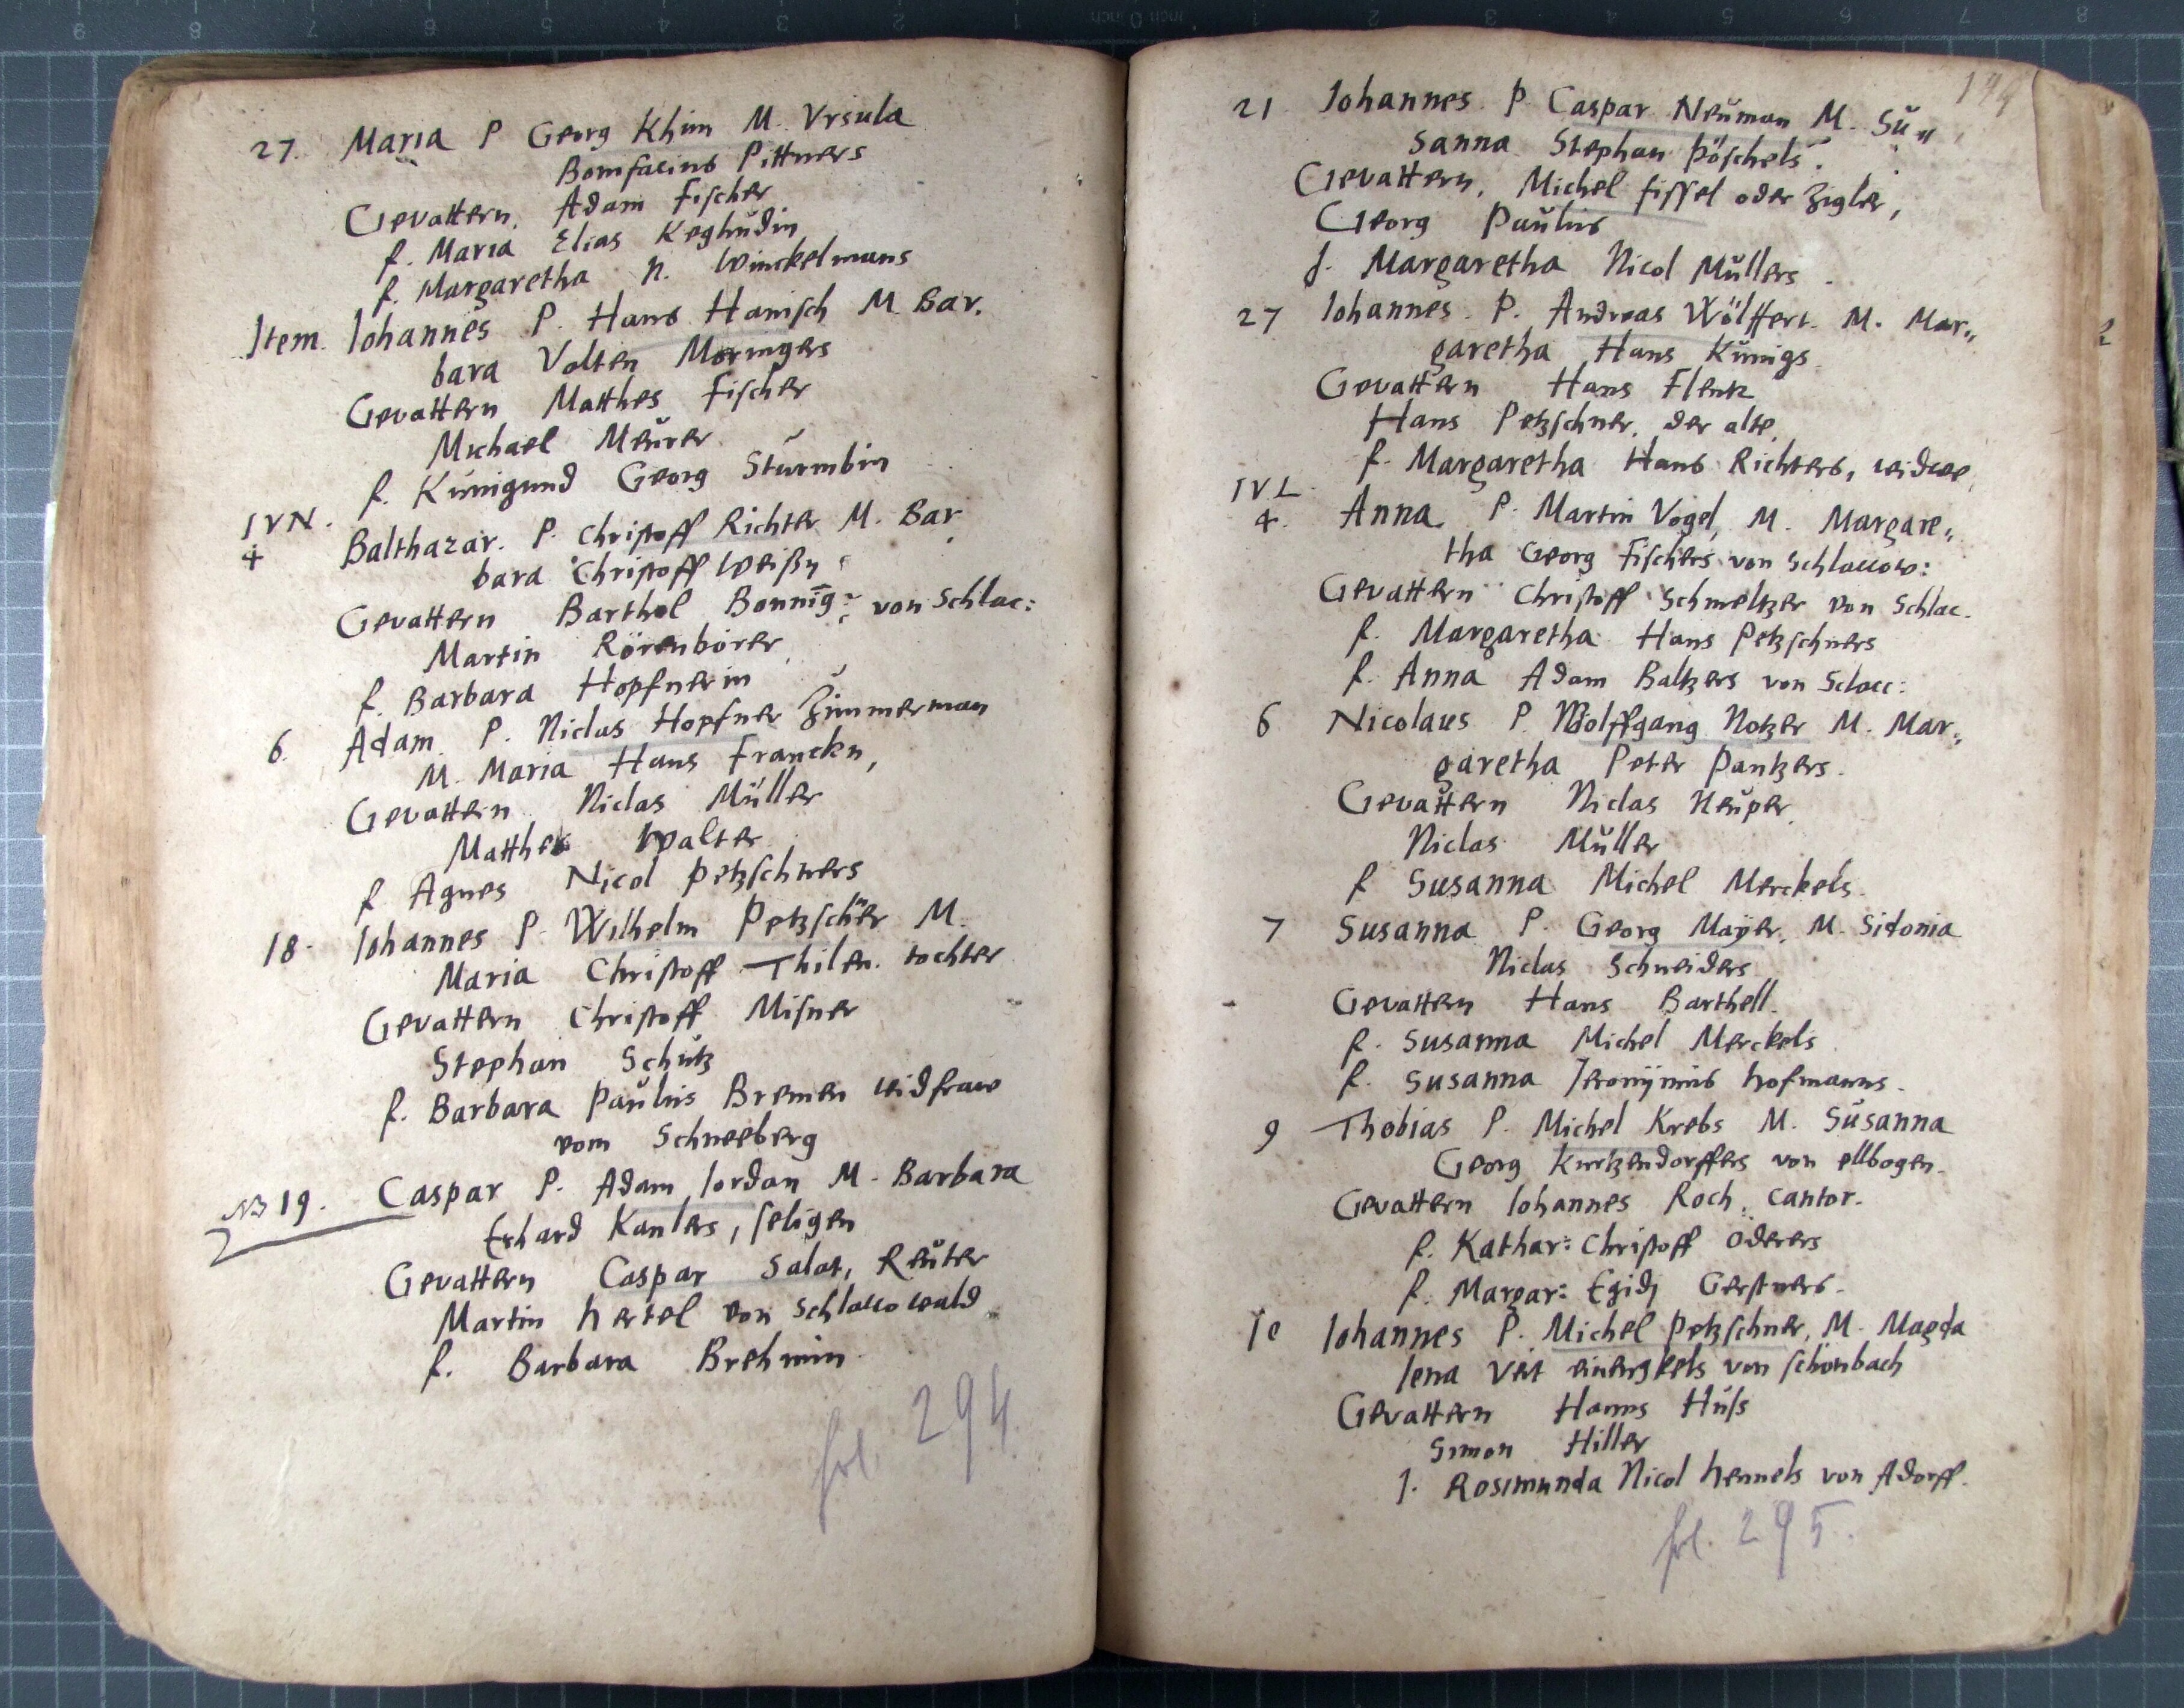 27. Maria P Georg Khim M. Vrsula
Bonifacius Pittners
Gevattern. Adam Fischer
f. Maria Elias
f. Margaretha N. Winckelmans
Item. Iohannes P. Hans Hanisch M. Bar.
bara Volten Moringers
Gevattern Matthes Fischer
Michael Meürer
f. Künigund Georg Stürmbin
IVN.
4 Balthazar. P. Christoff Richter M. Bar
bara Christoff Weißn
Gevattern Barthol Bonnig: von Schlac:
Martin Rörenborer
f. Barbara Hopfnerin
6. Adam P. Niclas Hopfner Zimmerman
M. Maria Hans Franckn,
Gevattern Niclas Müller
Matthes Walter
f Agnes Nicol Petzschners
18. Iohannes P. Wilhelm Petzscher M.
Maria Christoff Thilen tochter
Gevattern Christoff Misner
Stephan Schütz
f. Barbara Paülus Bremen widfraw
vom Schneeberg
NB 19. Caspar P. Adam Iordan M. Barbara
Erhard Kanlers, seligen
Gevattern Caspar Salat, Reüter
Martin Hertel von Schlaccowald
f. Barbara Brehmin
fol. 294
21 Iohannes. P. Caspar Neüman M. Sü„
sanna Stephan Pöschels.
Gevattern. Michel fissel oder Zigler,
Georg Paülus
f. Margaretha Nicol Müllers.
27 Iohannes. P. Andreas Wölffert. M. Mar„
garetha Hans Künigs
Gevattern Hans Flenk
Hans Petzschner. der alte.
f. Margaretha Hans Richters, widwe
IVL
4. Anna. P. Martin Vogel, M. Margare„
tha Georg Fischers von Schlaccow:
Gevattern Christoff Schmeltzer von Schlac.
f. Margaretha Hans Petzschners
f. Anna Adam Baltzers von Sclacc:
6 Nicolaus P. Wolffgang Notzer M. Mar„
garetha Peter Pantzers.
Gevattern Niclas Heüper
Niclas Müller
f Susanna Michel Merckels.
7 Susanna P. Georg Mayer, M. Sidonia
Niclas Schneiders
Gevattern Hans Barthell.
f. Susanna Michel Merckels
f. Susanna Jeronÿmüs Hofmanns.
9 Thobias P. Michel Krebs M. Süsanna
Georg Kurtzendorffers von ellbogen.
Gevattern Iohannes Roch, cantor.
f. Kathar: Christoff Öderers
f. Margar: Egidj Gerstners.
10 Iohannes P. Michel Petzschner, M. Magda
lena Veit von schönbach
Gevattern Hanns Hüss
Simon Hiller
f. Rosimunda Nicol Hennels von Adorff.
fol. 295.